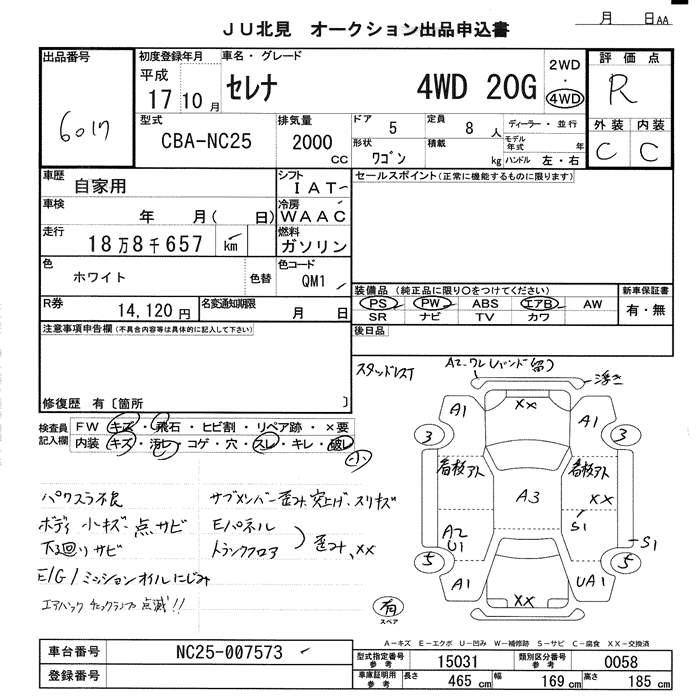 月 日AA
JU北見 オークション出品申込書
出品番号 初度登録年月 車名・グレード 2WD ・ 4WD 評価点
6017 平成 17 10月 セレナ 4WD 20G R
型式 排気量 ドア 5 定員 8 人 ディーラー・並行 外装 内装
CBA-NC25 2000 CC 形状 ワゴン 積載 kg モデル年式 年 ハンドル 左・右 C C
車歴 自家用 シフト IAT セールスポイント(正常に機能するものに限ります)
車検 年 月( 日) 冷房 WAAC
走行 18万8千657 km 燃料 ガソリン
色 ホワイト 色替 色コード QM1
装備品(純正品に限り○をつけてください) 新車保証書
PS PW ABS エアB AW 有・無
SR ナビ TV カワ
R券 14,120円 名変通知期限 月 日
後日品
注意事項申告欄(不具合内容等は具体的に記入して下さい)
スタッドレス
修復歴 有〔箇所 〕
検査員記入欄 FW キズ・飛石・ヒビ割・リペア跡・×要
内装 キズ・汚レ・コゲ・穴・スレ・キレ・破レ 小
浮き
A1 XX A1
3 3
看板アト 看板アト
A3 XX
S1
A2 U1 S1
5 5
A1 XX UA1
パワスラ不良 サブメンバー歪み、突上げ、スリキズ
ボディ 小キズ 点サビ Eパネル
下回りサビ トランクフロア 歪み、XX
E/G/ミッションオイルにじみ
エアバック チェックランプ点滅!!
有 スペア
A-キズ E-エクボ U-凹み W-補修跡 S-サビ C-腐食 XX-交換済
車台番号 NC25-007573
登録番号
型式指定番号 参考 15031 類別区分番号 参考 0058
車庫証明用 参考 長さ 465 cm 幅 169 cm 高さ 185 cm